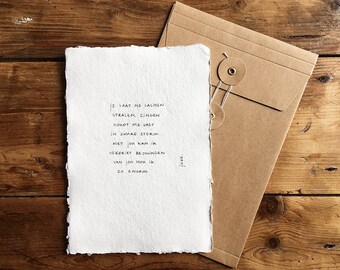 JE LAAT ME LACHEN
STRALEN, ZINGEN
HOUDT ME VAST
IN ZWARE STORM
MET JOU KAN IK
VERDRIET BEDWINGEN
VAN JOU HOU IK
ZO ENORM